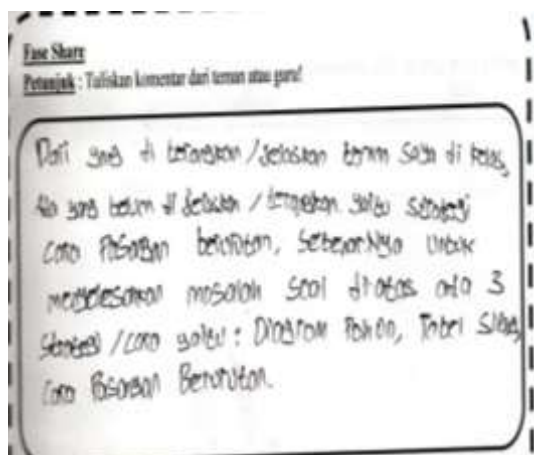 Fase Share
Petunjuk : Tuliskan komentar dari teman atau guru!
Dari yang di terangkan / jelaskan teman saya di kelas,
Ada yang belum di jelaskan / terapkan yaitu strategi
cara Pasangan berurutan, sebenarnya untuk
menyelesaikan masalah soal diatas ada 3
strategi / cara yaitu : Diagram Pohon, Tabel Silang,
Cara Pasangan Berurutan.